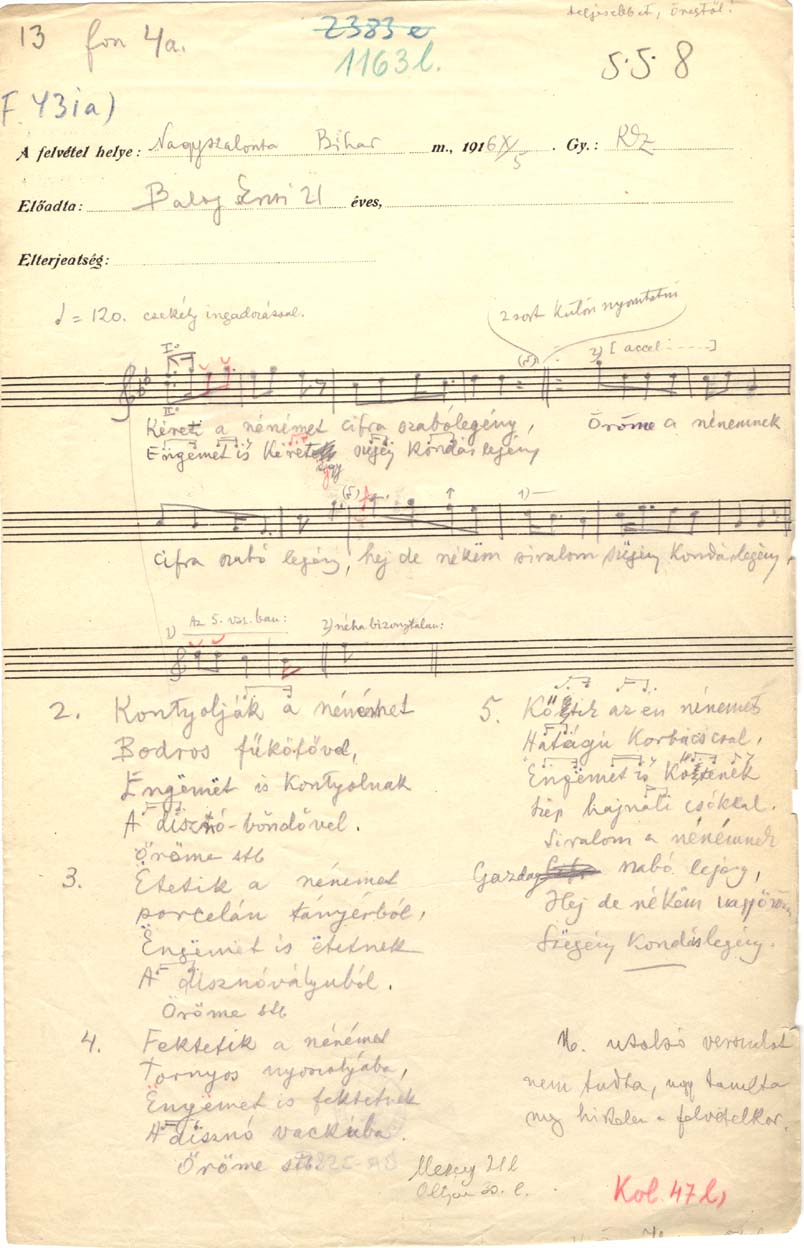 teljesebbet, őnestől!
13 fon 4a.
2383 e
1163 l.
5·5 8
F 431a)
A felvétel helye: Nagyszalonta Bihar m., 1916 X/5. Gy.: KZ
Előadta: Balog Erzsi 21 éves,
Elterjeatség:
= 120. csekély ingadozással.
2 sort külön nyomtatni
I.º
(5)
2) [accel-----]
II.º
Kéreti a nénémet cifra szabólegény, Öröme a nénémnek
Engëmet is kéret egy szegény kondáslegény
(5) 1)—
cifra szabó legény, hej de nékëm siralom szëgény kondáslegény.
1) Az 5. vsz.ban: 2) néha bizonytalan:
2. Kontyolják a nénémet
Bodros fűkötővel,
Ëngëmët is kontyolnak
A disznó-böndővel.
Öröme stb
3. Etetik a nénémet
porcelán tányérból,
Ëngëmet is ëtetnek
A disznóvályuból.
Öröme stb
4. Fektetik a nénémet
Tornyos nyoszolyába,
Ëngëmet is fektetnek
A disznó vackába.
Öröme stb
5. Költik az én nénémet
Hatágú korbáccsal,
Ëngëmet is költenek
Szép hajnali csókkal.
Siralom a nénémnek
Gazdag szabó legény,
Hej de nékëm nagy öröm
Szëgény kondáslegény.
Az utolsó versszakot
nem tudta, úgy tanulta
meg hirtelen a felvételkor.
21 l
30. l.
Kol. 47 l,